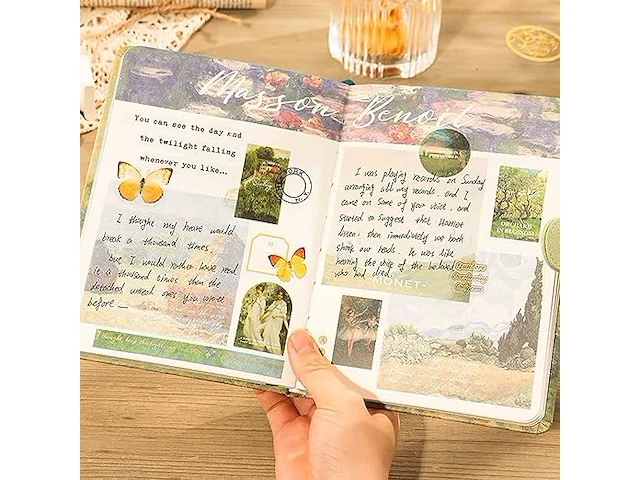 Masson Benoit
You can see the day and
the twilight falling
whenever you like...
I thought my heart would
break a thousand times,
but I would rather have read
it a thousand times than the
detached unreal ones you wrote
before —
I was playing records on Sunday
arranging all my records, and I
came on some of your voice, and
started to suggest that Harriet
listen: then immediately we both
shook our heads. It was like
hearing the voice of the beloved
who had died.
-MONET-
ORCHARD
IN BLOSSOM